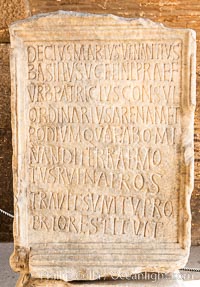 DECIVS MARIVS VENANTIVS
BASILIVS V C ET INL PRAEF
VRB PATRICIVS CONSVL
ORDINARIVS ARENAM ET
PODIVM QVAE ABOMI
NANDI TERRAE MO
TVS RVINA PROS
TRAVIT SVMTV PRO
PRIO RESTITVIT